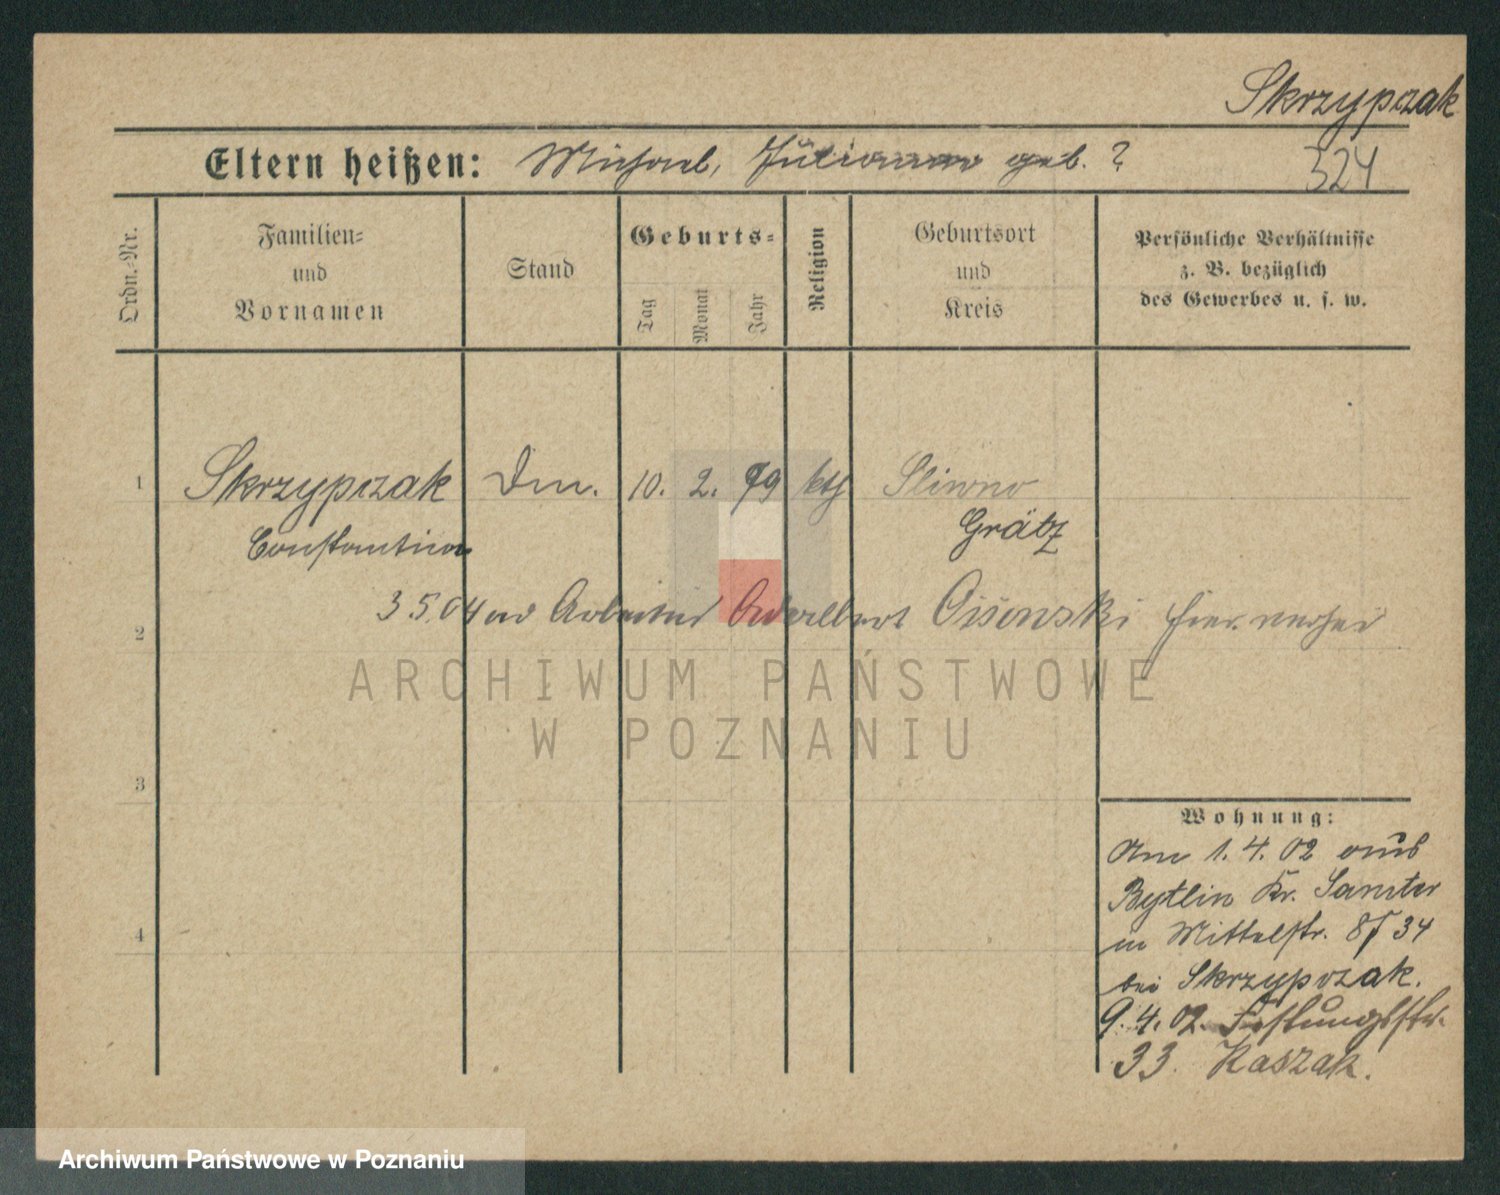 Skrzypczak
Eltern heißen: Michael, Julianna geb. ?
324
Ordn.-Nr.
Familien-
und
Vornamen
Stand
Geburts-
Tag
Monat
Jahr
Religion
Geburtsort
und
Kreis
Persönliche Verhältnisse
z. B. bezüglich
des Gewerbes u. s. w.
1 Skrzypczak Dm. 10. 2. 79 kth Sliwno
Constantia Grätz
2 3.5.04 Arbeiter Adalbert hier verhei
ARCHIWUM PAŃSTWOWE
W POZNANIU
3
4
Wohnung:
Am 1. 4. 02 aus
Bytlin Kr. Samter
in Mittelstr. 34
bei Skrzypczak.
9. 4. 02. Festungsstr.
33. Kaszak.
Archiwum Państwowe w Poznaniu